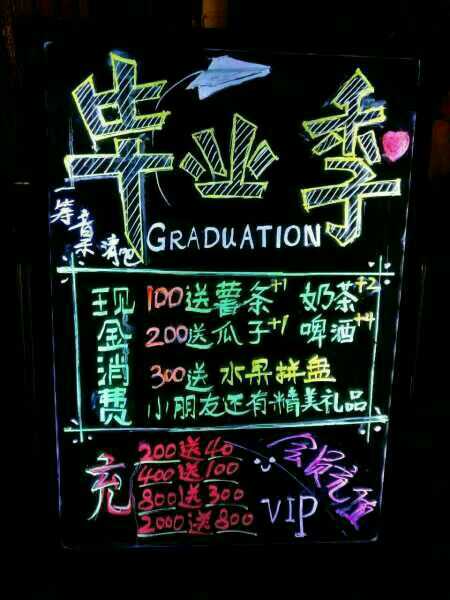 毕业季
GRADUATION
音乐清吧
现金消费
100送薯条+1 奶茶+2
200送瓜子+1 啤酒+4
300送水果拼盘
小朋友还有精美礼品
充
200送40
400送100
800送300
2000送800
会员充值
VIP